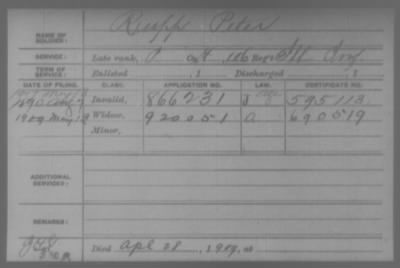 NAME OF SOLDIER: Rupp Peter
SERVICE: Late rank, P Co. H, 106 Reg't Ill Inf
TERM OF SERVICE: Enlisted , 1 Discharged , 1
DATE OF FILING. CLASS. APPLICATION NO. LAW. CERTIFICATE NO.
1890 Aug 7 Invalid, 866231 595113
1909 May 13 Widow, 920051 690519
Minor,
ADDITIONAL SERVICES:
REMARKS:
Died Apl 28, 1909, at